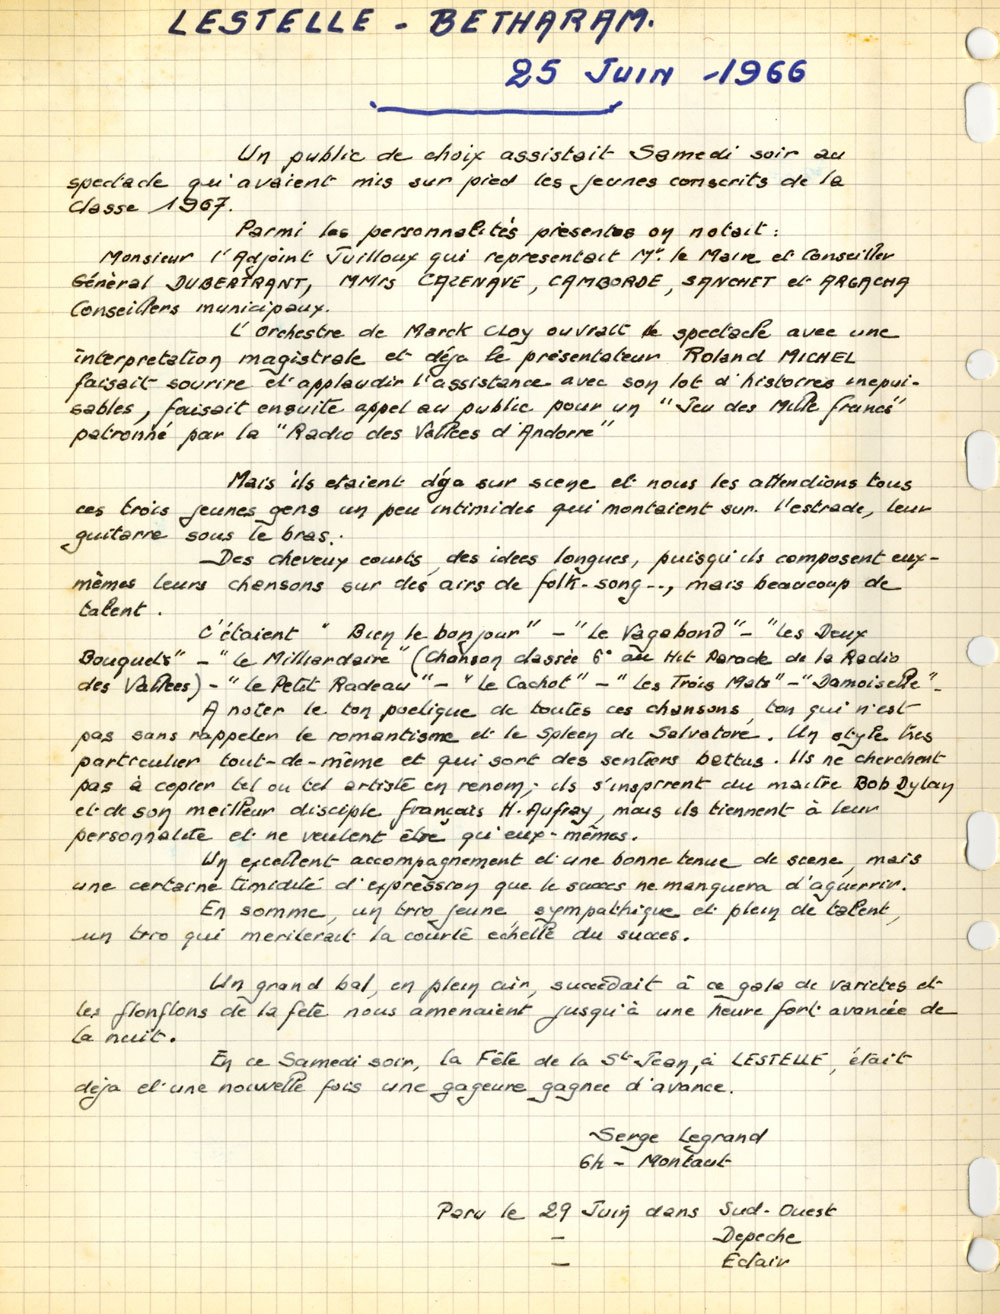 LESTELLE - BETHARAM.
25 JUIN -1966
Un public de choix assistait Samedi soir au
spectacle qu'avaient mis sur pied les jeunes conscrits de la
Classe 1967.
Parmi les personnalités présentes on notait :
Monsieur l'Adjoint Juilloux qui représentait Mr. le Maire et Conseiller
Général DUBERTRANT, MMrs CAZENAVE, CAMBORDE, SANCHET et ARGACHA
Conseillers municipaux.
L'Orchestre de Marck CLOY ouvrait le spectacle avec une
interpretation magistrale et déja le présentateur Roland MICHEL
faisait sourire et applaudir l'assistance avec son lot d'histoires inepui-
sables, faisait ensuite appel au public pour un "Jeu des Mille francs"
patronné par la "Radio des Vallées d'Andorre"
Mais ils etaient déja sur scene et nous les attendions tous
ces trois jeunes gens un peu intimides qui montaient sur l'estrade, leur
guitarre sous le bras.
Des cheveux courts, des idees longues, puisqu'ils composent eux-
mêmes leurs chansons sur des airs de folk-song --, mais beaucoup de
talent.
C'étaient " Bien le bonjour" - "le Vagabond" - "les Deux
Bouquets" - "le Milliardaire" (Chanson classée 6° au Hit Parade de la Radio
des Vallées) - "le Petit Radeau" - "le Cachot" - "les Trois Mats" - "Damoiselle".
A noter le ton poetique de toutes ces chansons, ton qui n'est
pas sans rappeler le romantisme et le Spleen de Salvatore. Un style très
particulier tout-de-même et qui sort des sentiers battus. Ils ne cherchent
pas à copier tel ou tel artiste en renom; ils s'inspirent du maitre Bob Dylan
et de son meilleur disciple français H. Aufray, mais ils tiennent à leur
personnalite et ne veulent être qu'eux-mêmes.
Un excellent accompagnement et une bonne tenue de scene, mais
une certaine timidité d'expression que le succes ne manquera d'aguerrir.
En somme, un trio jeune, sympathique et plein de talent,
un trio qui meriterait la courte echelle du succes.
Un grand bal, en plein air, succédait à ce gala de varietes et
les flonflons de la fete nous amenaient jusqu'à une heure fort avancée de
la nuit.
En ce Samedi soir, la Fête de la St Jean, à LESTELLE, était
déja et une nouvelle fois une gageure gagnee d'avance.
Serge Legrand
64 - Montaut
Paru le 29 Juin dans Sud-Ouest
- Depeche
- Eclair